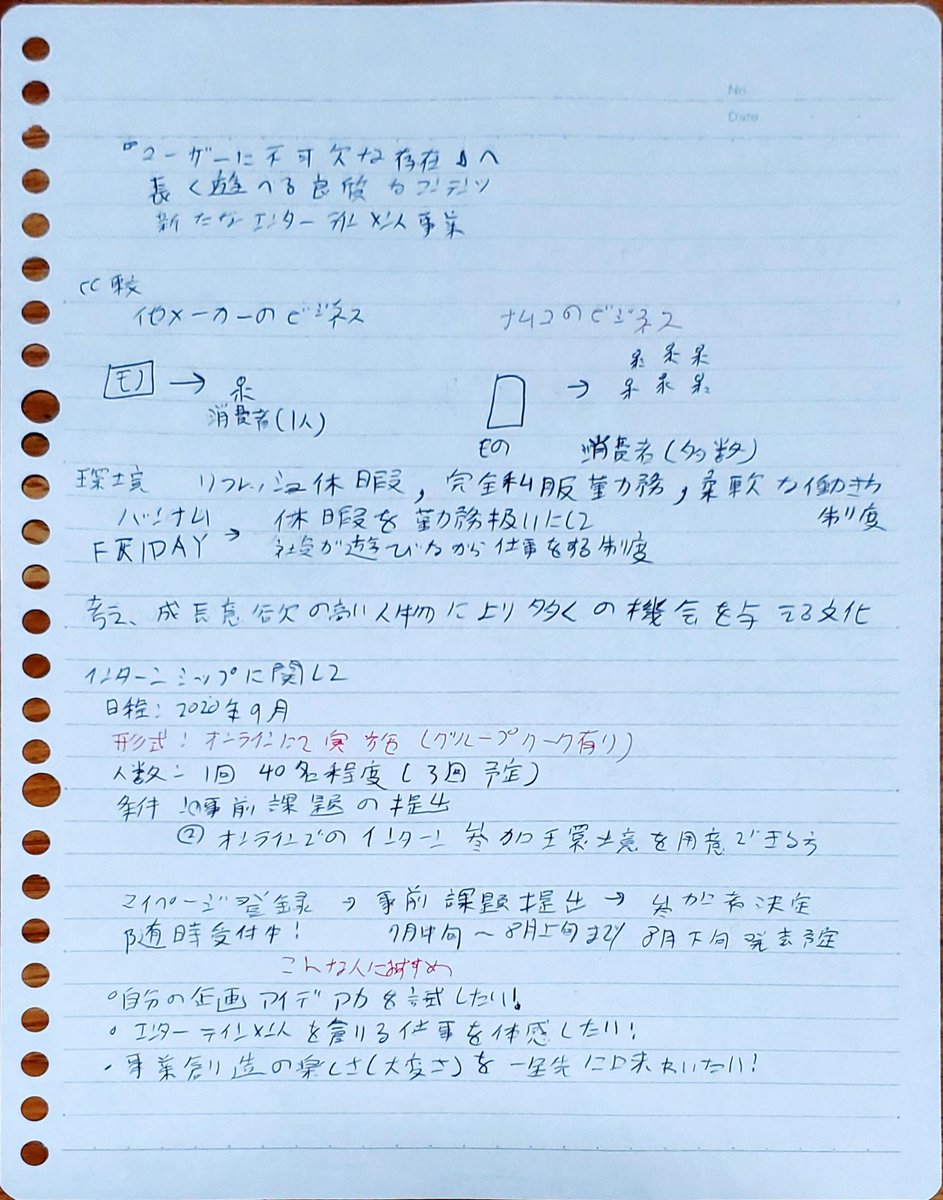 No.
Date
『ユーザーに不可欠な存在』へ
長く遊べる良質なコンテンツ
新たなエンターテインメント事業
比較
他メーカーのビジネス
ナムコのビジネス
モノ → 消費者(1人)
もの → 消費者(多数)
環境 リフレッシュ休暇, 完全私服勤務, 柔軟な働き方制度
バンナム FRIDAY → 休暇を勤務扱いにして
社員が遊びながら仕事をする制度
考え、成長意欲の高い人物により多くの機会を与える文化
インターンシップに関して
日程: 2020年9月
形式: オンラインにて実施 (グループワーク有り)
人数: 1回 40名程度 (3回予定)
条件 ①事前課題の提出
② オンラインでのインターン参加環境を用意できる方
マイページ登録 → 事前課題提出 → 参加者決定
随時受付中! 7月中旬〜8月上旬まで 8月下旬発表予定
こんな人におすすめ
°自分の企画アイデア力を試したい!
° エンターテインメントを創りる仕事を体感したい!
・事業創造の楽しさ(大変さ)を一足先に味わいたい!